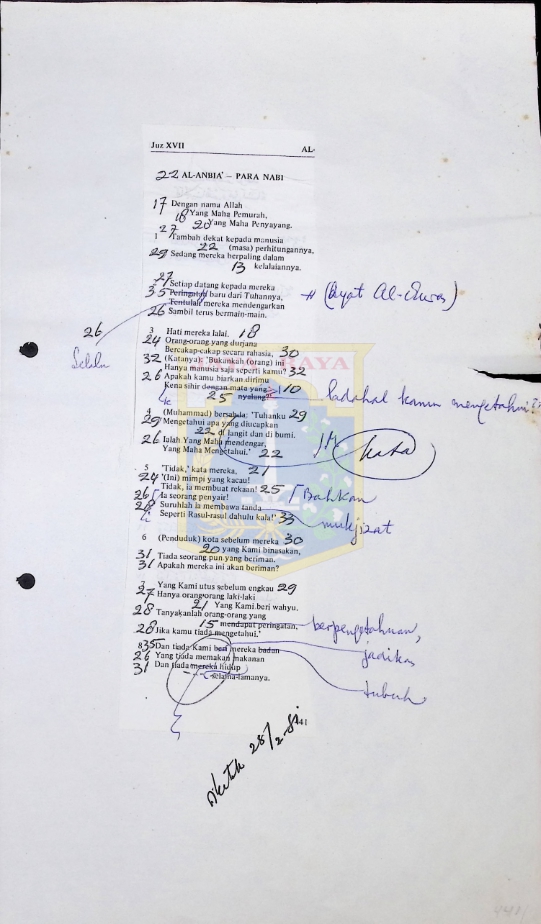 Juz XVII AL-
22 AL-ANBIA' — PARA NABI
17 Dengan nama Allah
18 Yang Maha Pemurah,
20 Yang Maha Penyayang.
27
1 Tambah dekat kepada manusia
22 (masa) perhitungannya,
29 Sedang mereka berpaling dalam
13 kelalaiannya.
27
Setiap datang kepada mereka
35 Peringatan baru dari Tuhannya, # (Ayat Al-Quran)
Tentulah mereka mendengarkan
26 Sambil terus bermain-main.
26
Selalu
3 Hati mereka lalai. 18
24 Orang-orang yang durjana
Bercakap-cakap secara rahasia, 30
32 (Katanya): 'Bukankah (orang) ini
Hanya manusia saja seperti kamu? 32
26 Apakah kamu biarkan dirimu
Kena sihir dengan mata yang 10 Padahal kamu mengetahui?
25 nyalang?'
4 (Muhammad) bersabda: 'Tuhanku 29
29 Mengetahui apa yang diucapkan
22 di langit dan di bumi.
26 Ialah Yang Maha mendengar,
Yang Maha Mengetahui.' 22
kata
5 'Tidak,' kata mereka, 21
24 '(Ini) mimpi yang kacau!
Tidak, ia membuat rekaan! 25 Bahkan
26 Ia seorang penyair!
28 Suruhlah ia membawa tanda
Seperti Rasul-rasul dahulu kala!' 33 mukjizat
6 (Penduduk) kota sebelum mereka 30
20 yang Kami binasakan,
31 Tiada seorang pun yang beriman.
31 Apakah mereka ini akan beriman?
7 Yang Kami utus sebelum engkau 29
27 Hanya orang-orang laki-laki
21 Yang Kami beri wahyu.
28 Tanyakanlah orang-orang yang
15 mendapat peringatan, berpengetahuan,
28 Jika kamu tiada mengetahui.'
jadikan
8 35 Dan tiada Kami beri mereka badan
26 Yang tiada memakan makanan
31 Dan tiada mereka hidup
selama-lamanya.
tubuh
441
diketik 28/2-81